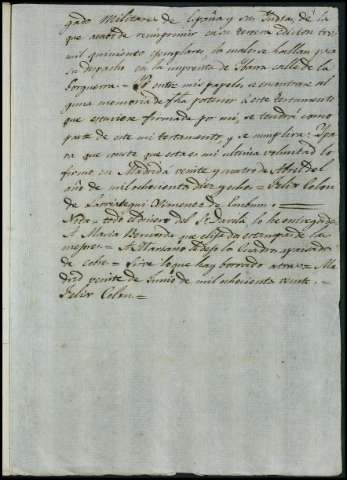 gado Militares de España y sus Indias, de la
que acabo de reimprimir en su tercera edicion tres
mil quinientos exemplares los quales se hallan para
su despacho en la imprenta de Ibarra calle de la
Gorguera = Si entre mis papeles, se encontrase al
guna memoria de fha posterior á este testamento
que estuviese firmada por mi, se tendrá como
parte de este mi testamento, y se cumplira: Y pa
ra que conste que esta es mi ultima voluntad lo
firmé en Madrid a veinte y quatro de Abril del
año de mil ochocientos diez y ocho = Felix Colon
de Larriategui Ximenez de Embun =
Nota = todo dinero del Sr. Davila lo he entregado =
A Maria Bernarda que elija dos estampas de las
mejores = A Mariano le dejo la Quadra, grabado
de cobre = Sirve lo que hay borrado atras = Ma
drid veinte de Junio de mil ochocientos veinte . =
Felix Colon =